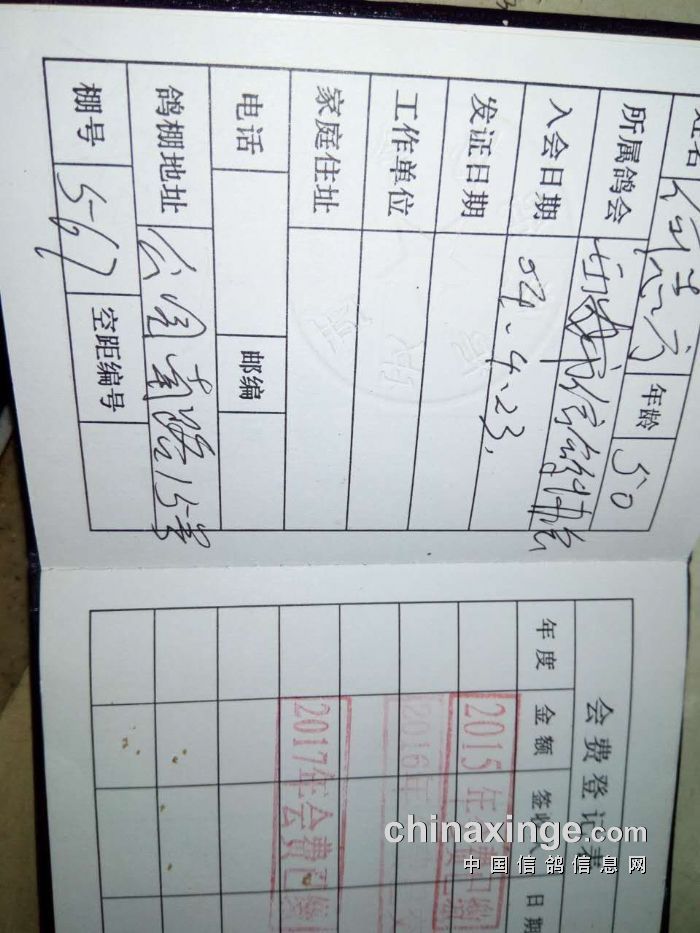 姓名 年龄 50
所属鸽会 信鸽协会
入会日期 04.4.23.
发证日期
工作单位
家庭住址
电话 邮编
鸽棚地址 公园南路15号
棚号 5-67 空距编号
会费登记表
年度 金额 签收人 日期
2015年会费已缴
2016年
2017年会费已缴
chinaxinge.com
中国信鸽信息网